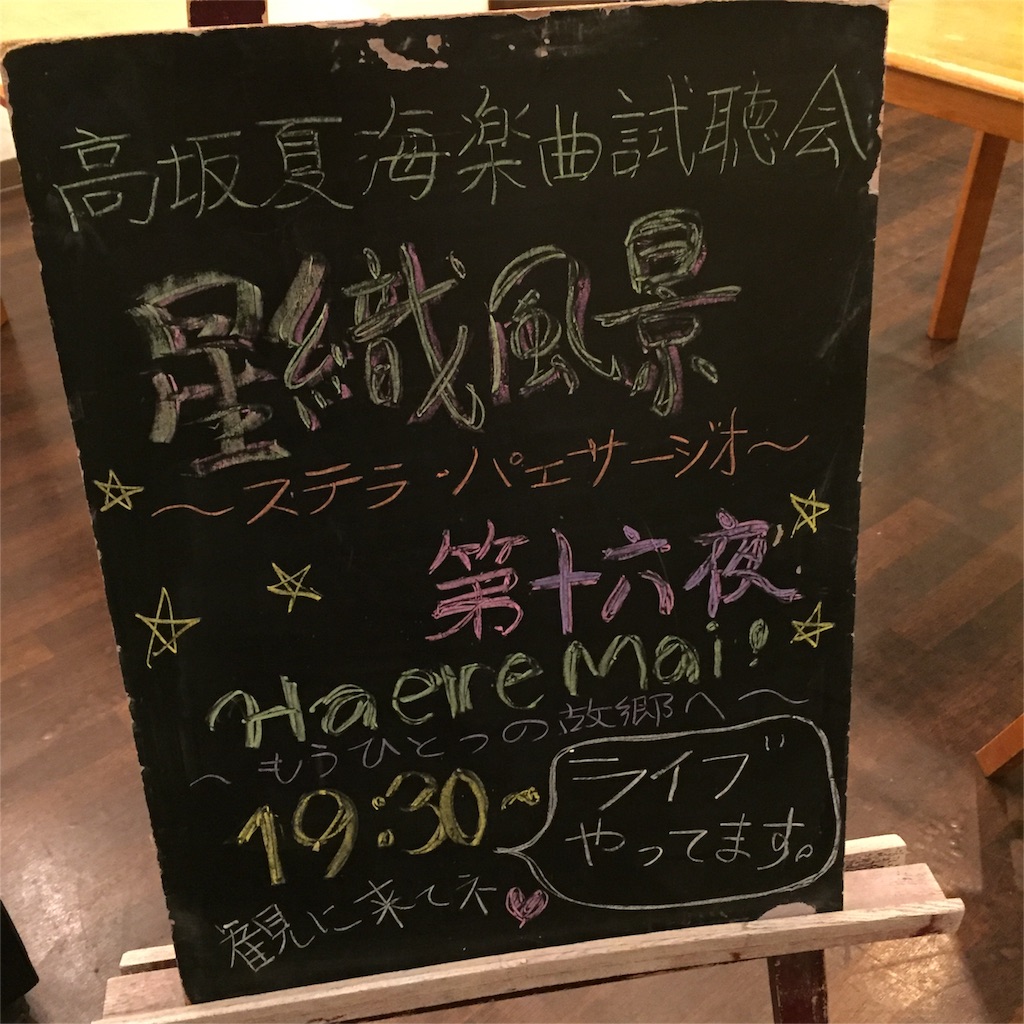 高坂夏海楽曲試聴会
星織風景
～ステラ・パエサージオ～
第十六夜
Haere Mai!
～もうひとつの故郷へ～
19:30～
ライブ
やってます。
観に来てネ♥